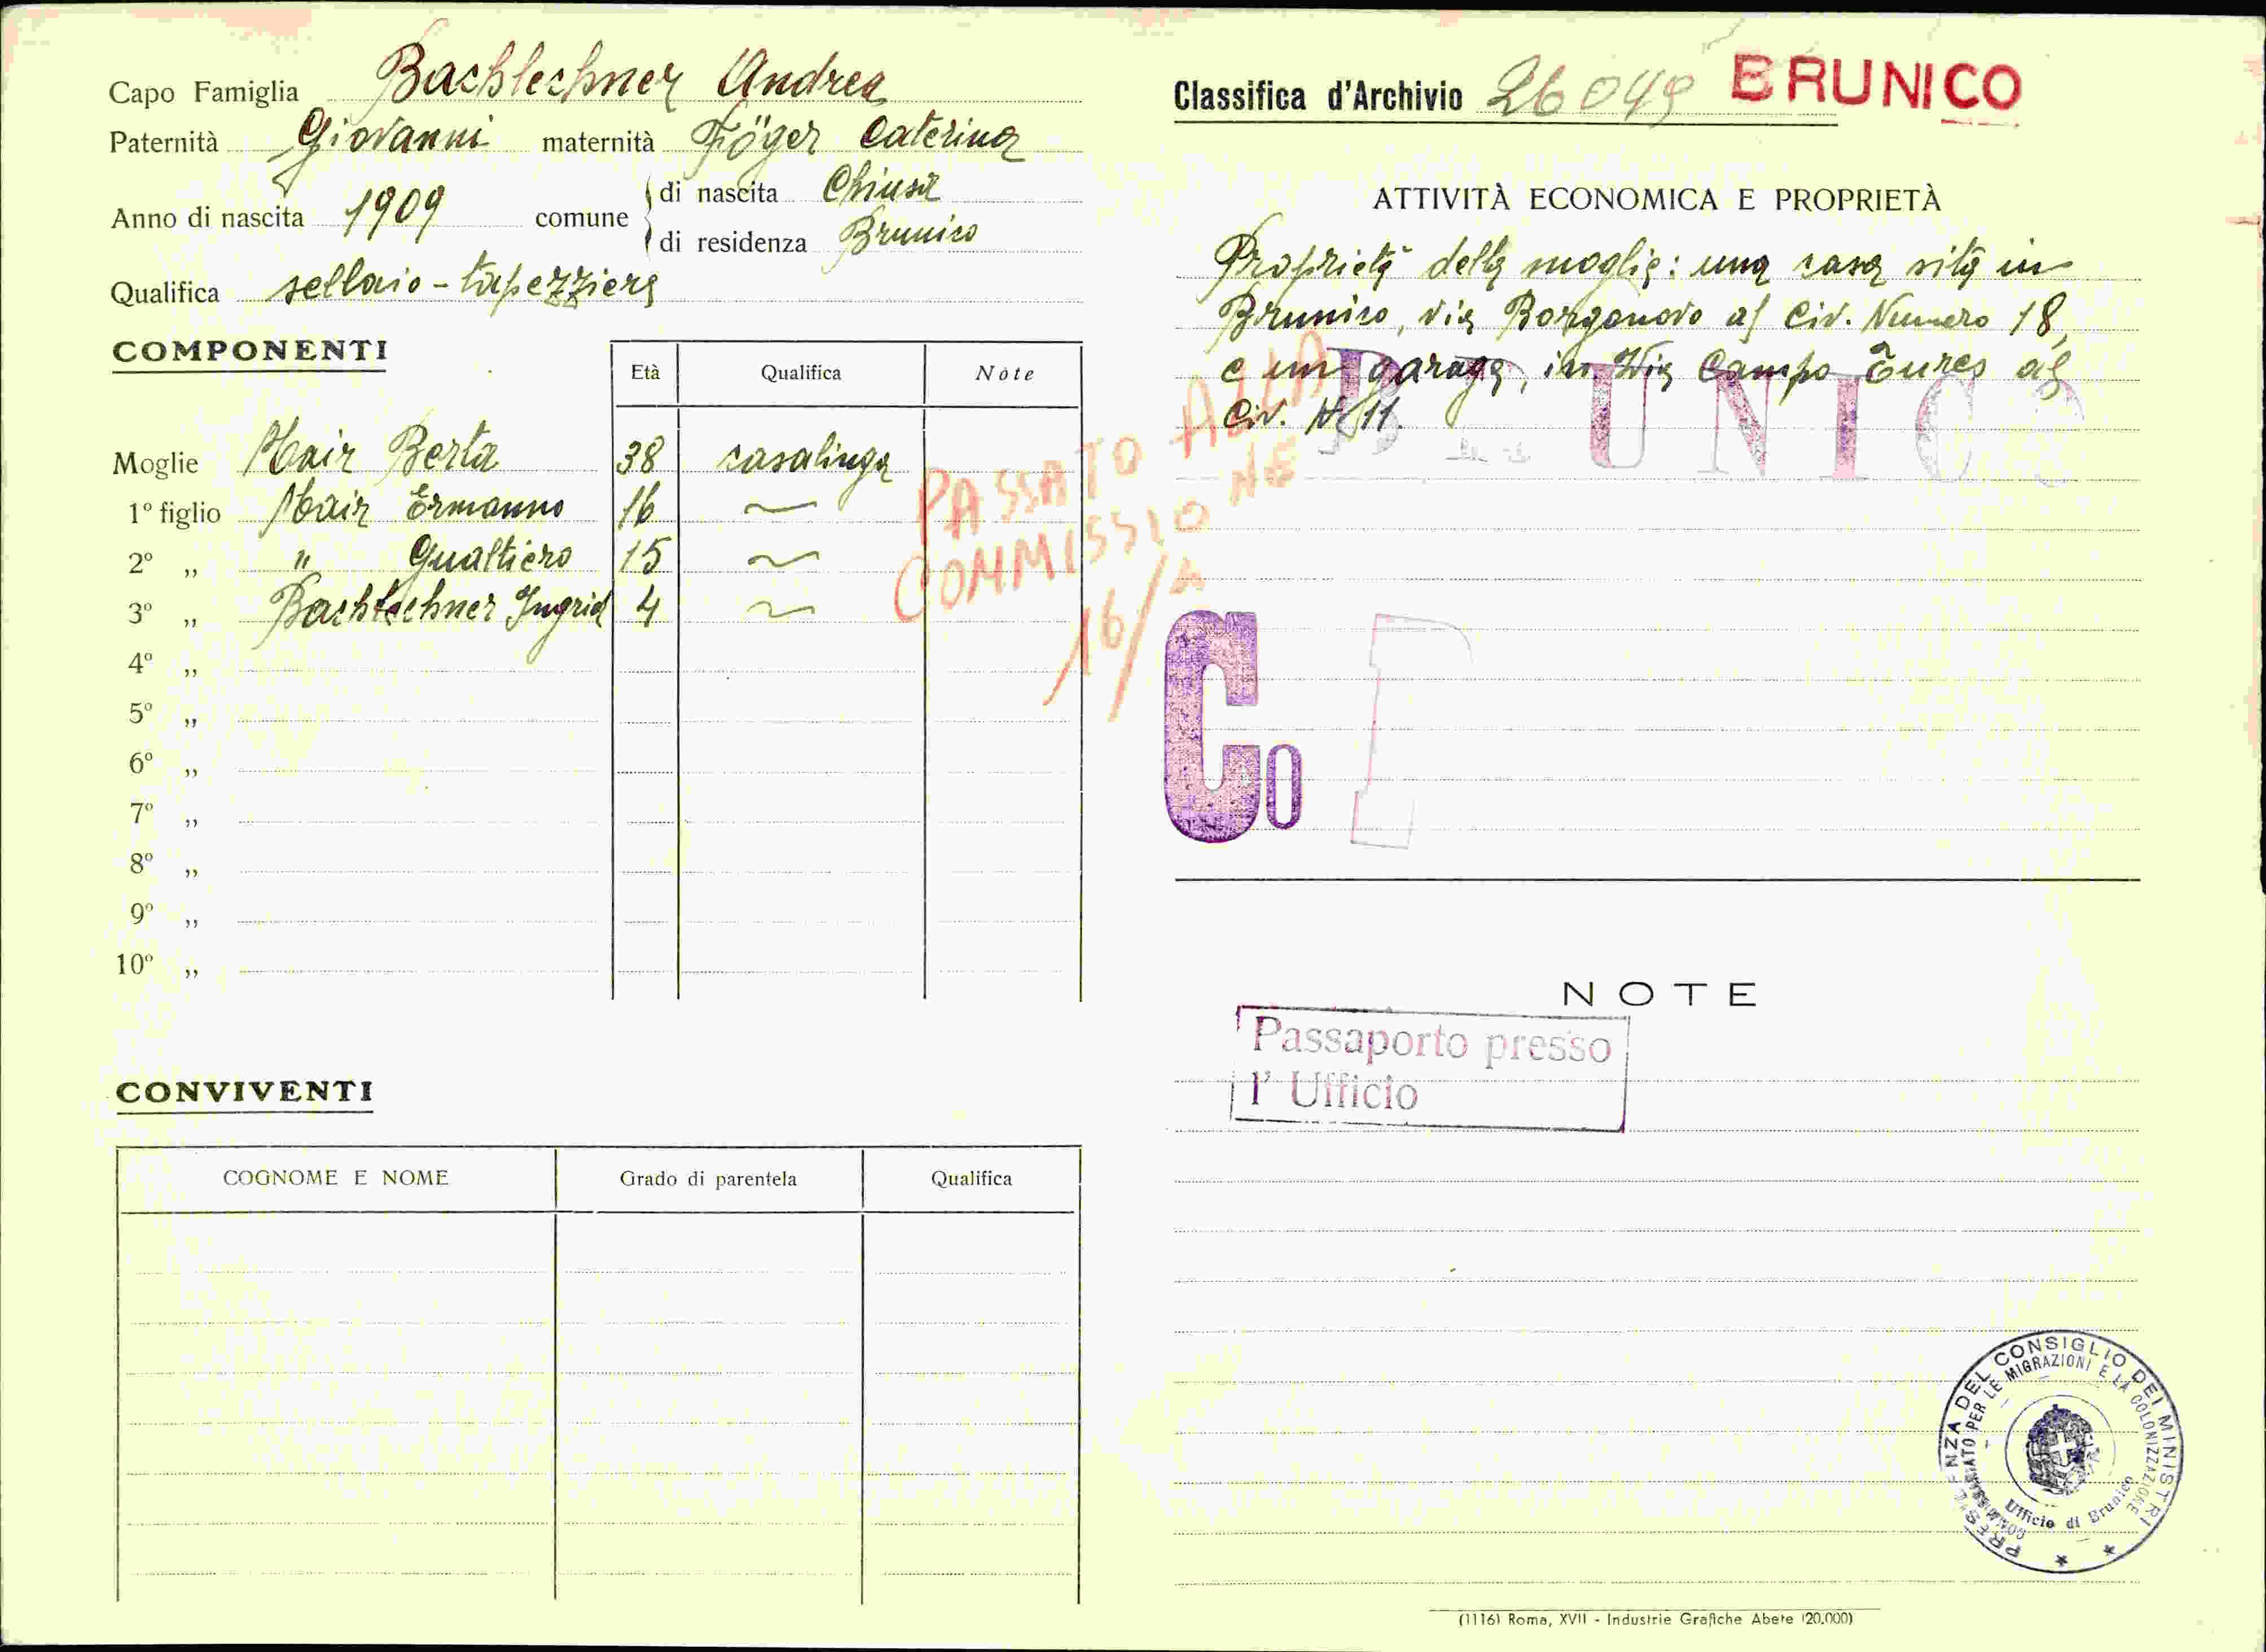 Capo Famiglia Bachlechner Andrea
Paternità Giovanni maternità Föger Caterina
Anno di nascita 1909 comune di nascita Chiusa
di residenza Brunico
Qualifica sellaio - tapezziere
COMPONENTI
Età Qualifica Note
Moglie Mair Berta 38 casalinga
1º figlio Mair Ermanno 16 ~
2º „ " Gualtiero 15 ~
3º „ Bachlechner Ingrid 4 ~
4º „
5º „
6º „
7º „
8º „
9º „
10º „
PASSATO ALLA
COMMISSIONE
CONVIVENTI
COGNOME E NOME Grado di parentela Qualifica
Classifica d'Archivio 26049 BRUNICO
ATTIVITÀ ECONOMICA E PROPRIETÀ
Proprietà della moglie: una casa sita in
Brunico, via Borgonovo al Civ. Numero 18,
e un garage, in Via Campo Tures al
Civ. N. 11.
BRUNICO
Co
NOTE
Passaporto presso
l' Ufficio
PRESIDENZA DEL CONSIGLIO DEI MINISTRI
COMMISSARIATO PER LE MIGRAZIONI E LA COLONIZZAZIONE
Ufficio di Brunico
(1116) Roma, XVII - Industrie Grafiche Abete (20.000)